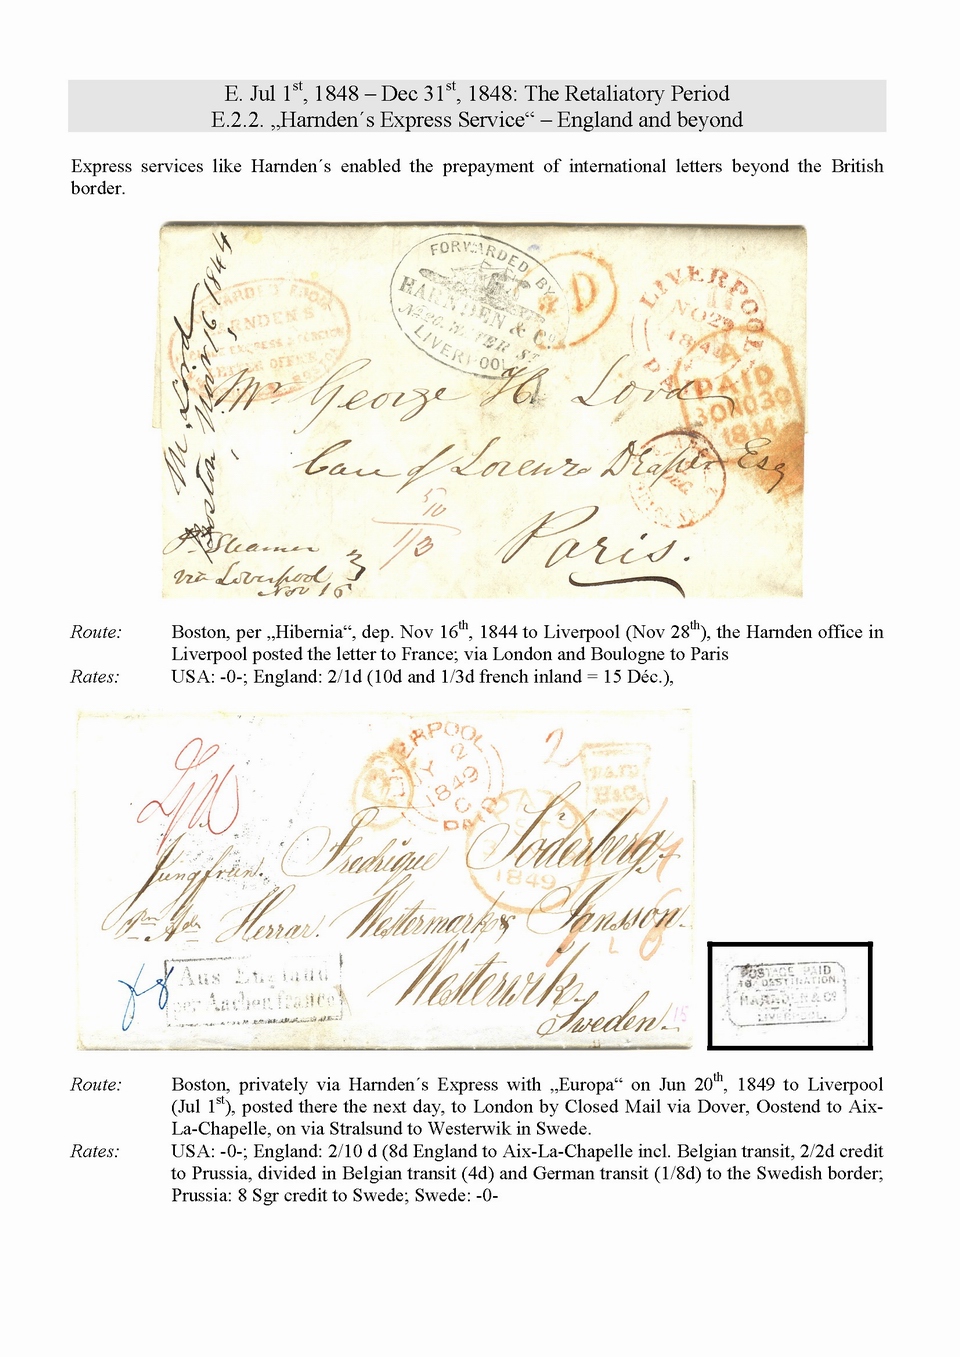 E. Jul 1st, 1848 – Dec 31st, 1848: The Retaliatory Period
E.2.2. „Harnden´s Express Service“ – England and beyond
Express services like Harnden´s enabled the prepayment of international letters beyond the British
border.
M. Lord
Boston Nov 16 1844
FORWARDED FROM
HARNDEN'S
LETTER OFFICE
FORWARDED BY
HARNDEN & Co
WATER ST
LIVERPOOL
D
LIVERPOOL
1844
PAID
30 NO 30
1844
Mr George H. Lord
Care of Lorenzo Draper Esq
Paris.
10
1/3
Pr Steamer
via Liverpool
Nov 16
3
Route: Boston, per „Hibernia“, dep. Nov 16th, 1844 to Liverpool (Nov 28th), the Harnden office in
Liverpool posted the letter to France; via London and Boulogne to Paris
Rates: USA: -0-; England: 2/1d (10d and 1/3d french inland = 15 Déc.),
LIVERPOOL
2
1849
C
PAID
2
1849
Jungfrun. Fredrique Söderberg.
Herrar. Westermark & Jansson.
Westerwik.
Sweden.
Aus England
per Aachen franco
15
POSTAGE PAID
TO DESTINATION.
HARNDEN & Co
LIVERPOOL.
Route: Boston, privately via Harnden´s Express with „Europa“ on Jun 20th, 1849 to Liverpool
(Jul 1st), posted there the next day, to London by Closed Mail via Dover, Oostend to Aix-
La-Chapelle, on via Stralsund to Westerwik in Swede.
Rates: USA: -0-; England: 2/10 d (8d England to Aix-La-Chapelle incl. Belgian transit, 2/2d credit
to Prussia, divided in Belgian transit (4d) and German transit (1/8d) to the Swedish border;
Prussia: 8 Sgr credit to Swede; Swede: -0-